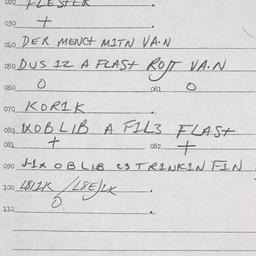 020 FLESTER .
030 +
040 DER MENCH MITN VA.N
050 DUS IZ A FLASH ROIT VA.N
060 O 061 O
070 KORIK .
080 IXOBLIB A FIL3 FLASH
081 + 082 +
090 J-IX OBLIB ES TRINKIN FIN
100 .
O
110 .